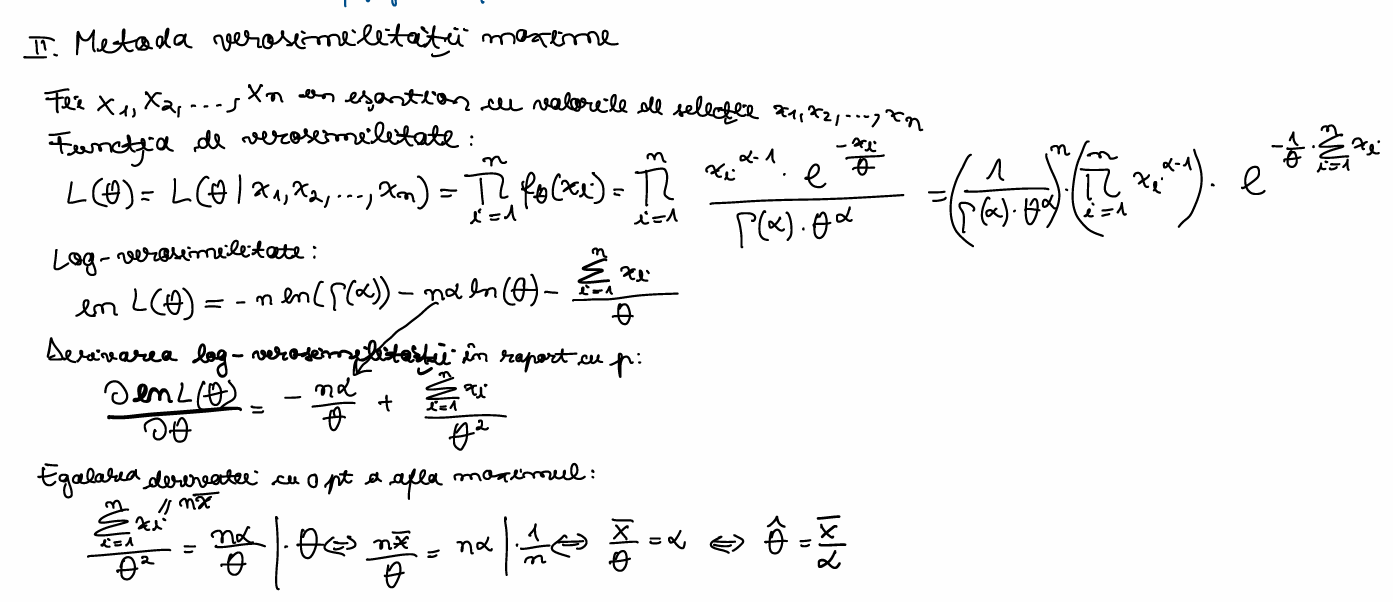 II. Metoda verosimilității maxime
Fie X₁, X₂, ..., Xₙ un eșantion cu valorile de selecție x₁, x₂, ..., xₙ
Funcția de verosimilitate:
L(θ) = L(θ | x₁, x₂, ..., xₙ) = ∏_{i=1}^{n} f_θ(xᵢ) = ∏_{i=1}^{n} (xᵢ^{α-1} · e^{-xᵢ/θ}) / (Γ(α) · θ^α) = (1 / (Γ(α) · θ^α))^n · (∏_{i=1}^{n} xᵢ^{α-1}) · e^{-1/θ · ∑_{i=1}^{n} xᵢ}
Log-verosimilitate:
ln L(θ) = - n ln(Γ(α)) - nα ln(θ) - (∑_{i=1}^{n} xᵢ) / θ
Derivarea log-verosimilității în raport cu p:
∂ ln L(θ) / ∂θ = - nα/θ + (∑_{i=1}^{n} xᵢ) / θ²
Egalarea derivatei cu 0 pt a afla maximul:
// nx̄
(∑_{i=1}^{n} xᵢ) / θ² = nα/θ | · θ ⇔ nx̄/θ = nα | · 1/n ⇔ x̄/θ = α ⇔ θ̂ = x̄/α